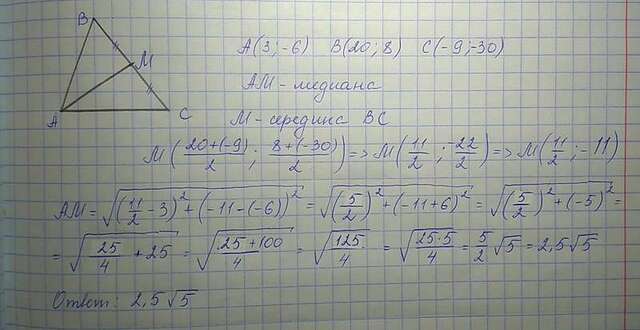 B
M
A
C
A(3;-6) B(20;8) C(-9;-30)
AM - медиана
M - середина BC
M(\frac{20+(-9)}{2}; \frac{8+(-30)}{2}) => M(\frac{11}{2}; \frac{-22}{2}) => M(\frac{11}{2}; -11)
AM = \sqrt{(\frac{11}{2}-3)^2+(-11-(-6))^2} = \sqrt{(\frac{5}{2})^2+(-11+6)^2} = \sqrt{(\frac{5}{2})^2+(-5)^2} =
= \sqrt{\frac{25}{4}+25} = \sqrt{\frac{25+100}{4}} = \sqrt{\frac{125}{4}} = \sqrt{\frac{25·5}{4}} = \frac{5}{2}\sqrt{5} = 2,5\sqrt{5}
Ответ: 2,5\sqrt{5}